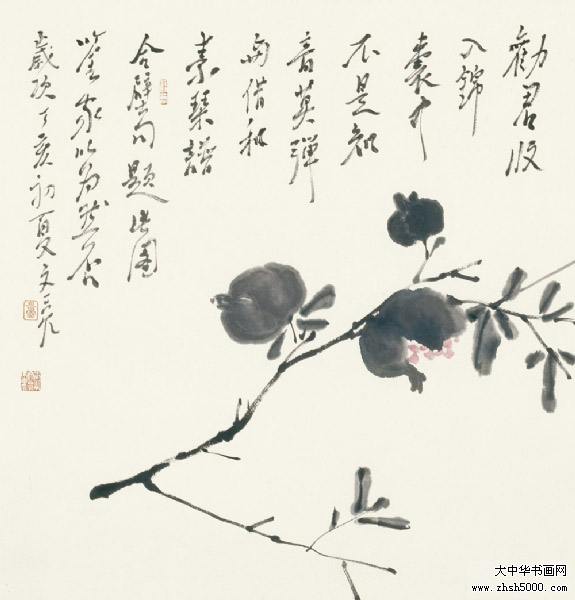 勸君收
入錦
囊中
不是知
音莫彈
兩借和
素琴譜
合璧句題此圖
鉴家以為然否
歲次丁亥初夏文
大中华书画网
www.zhsh5000.com